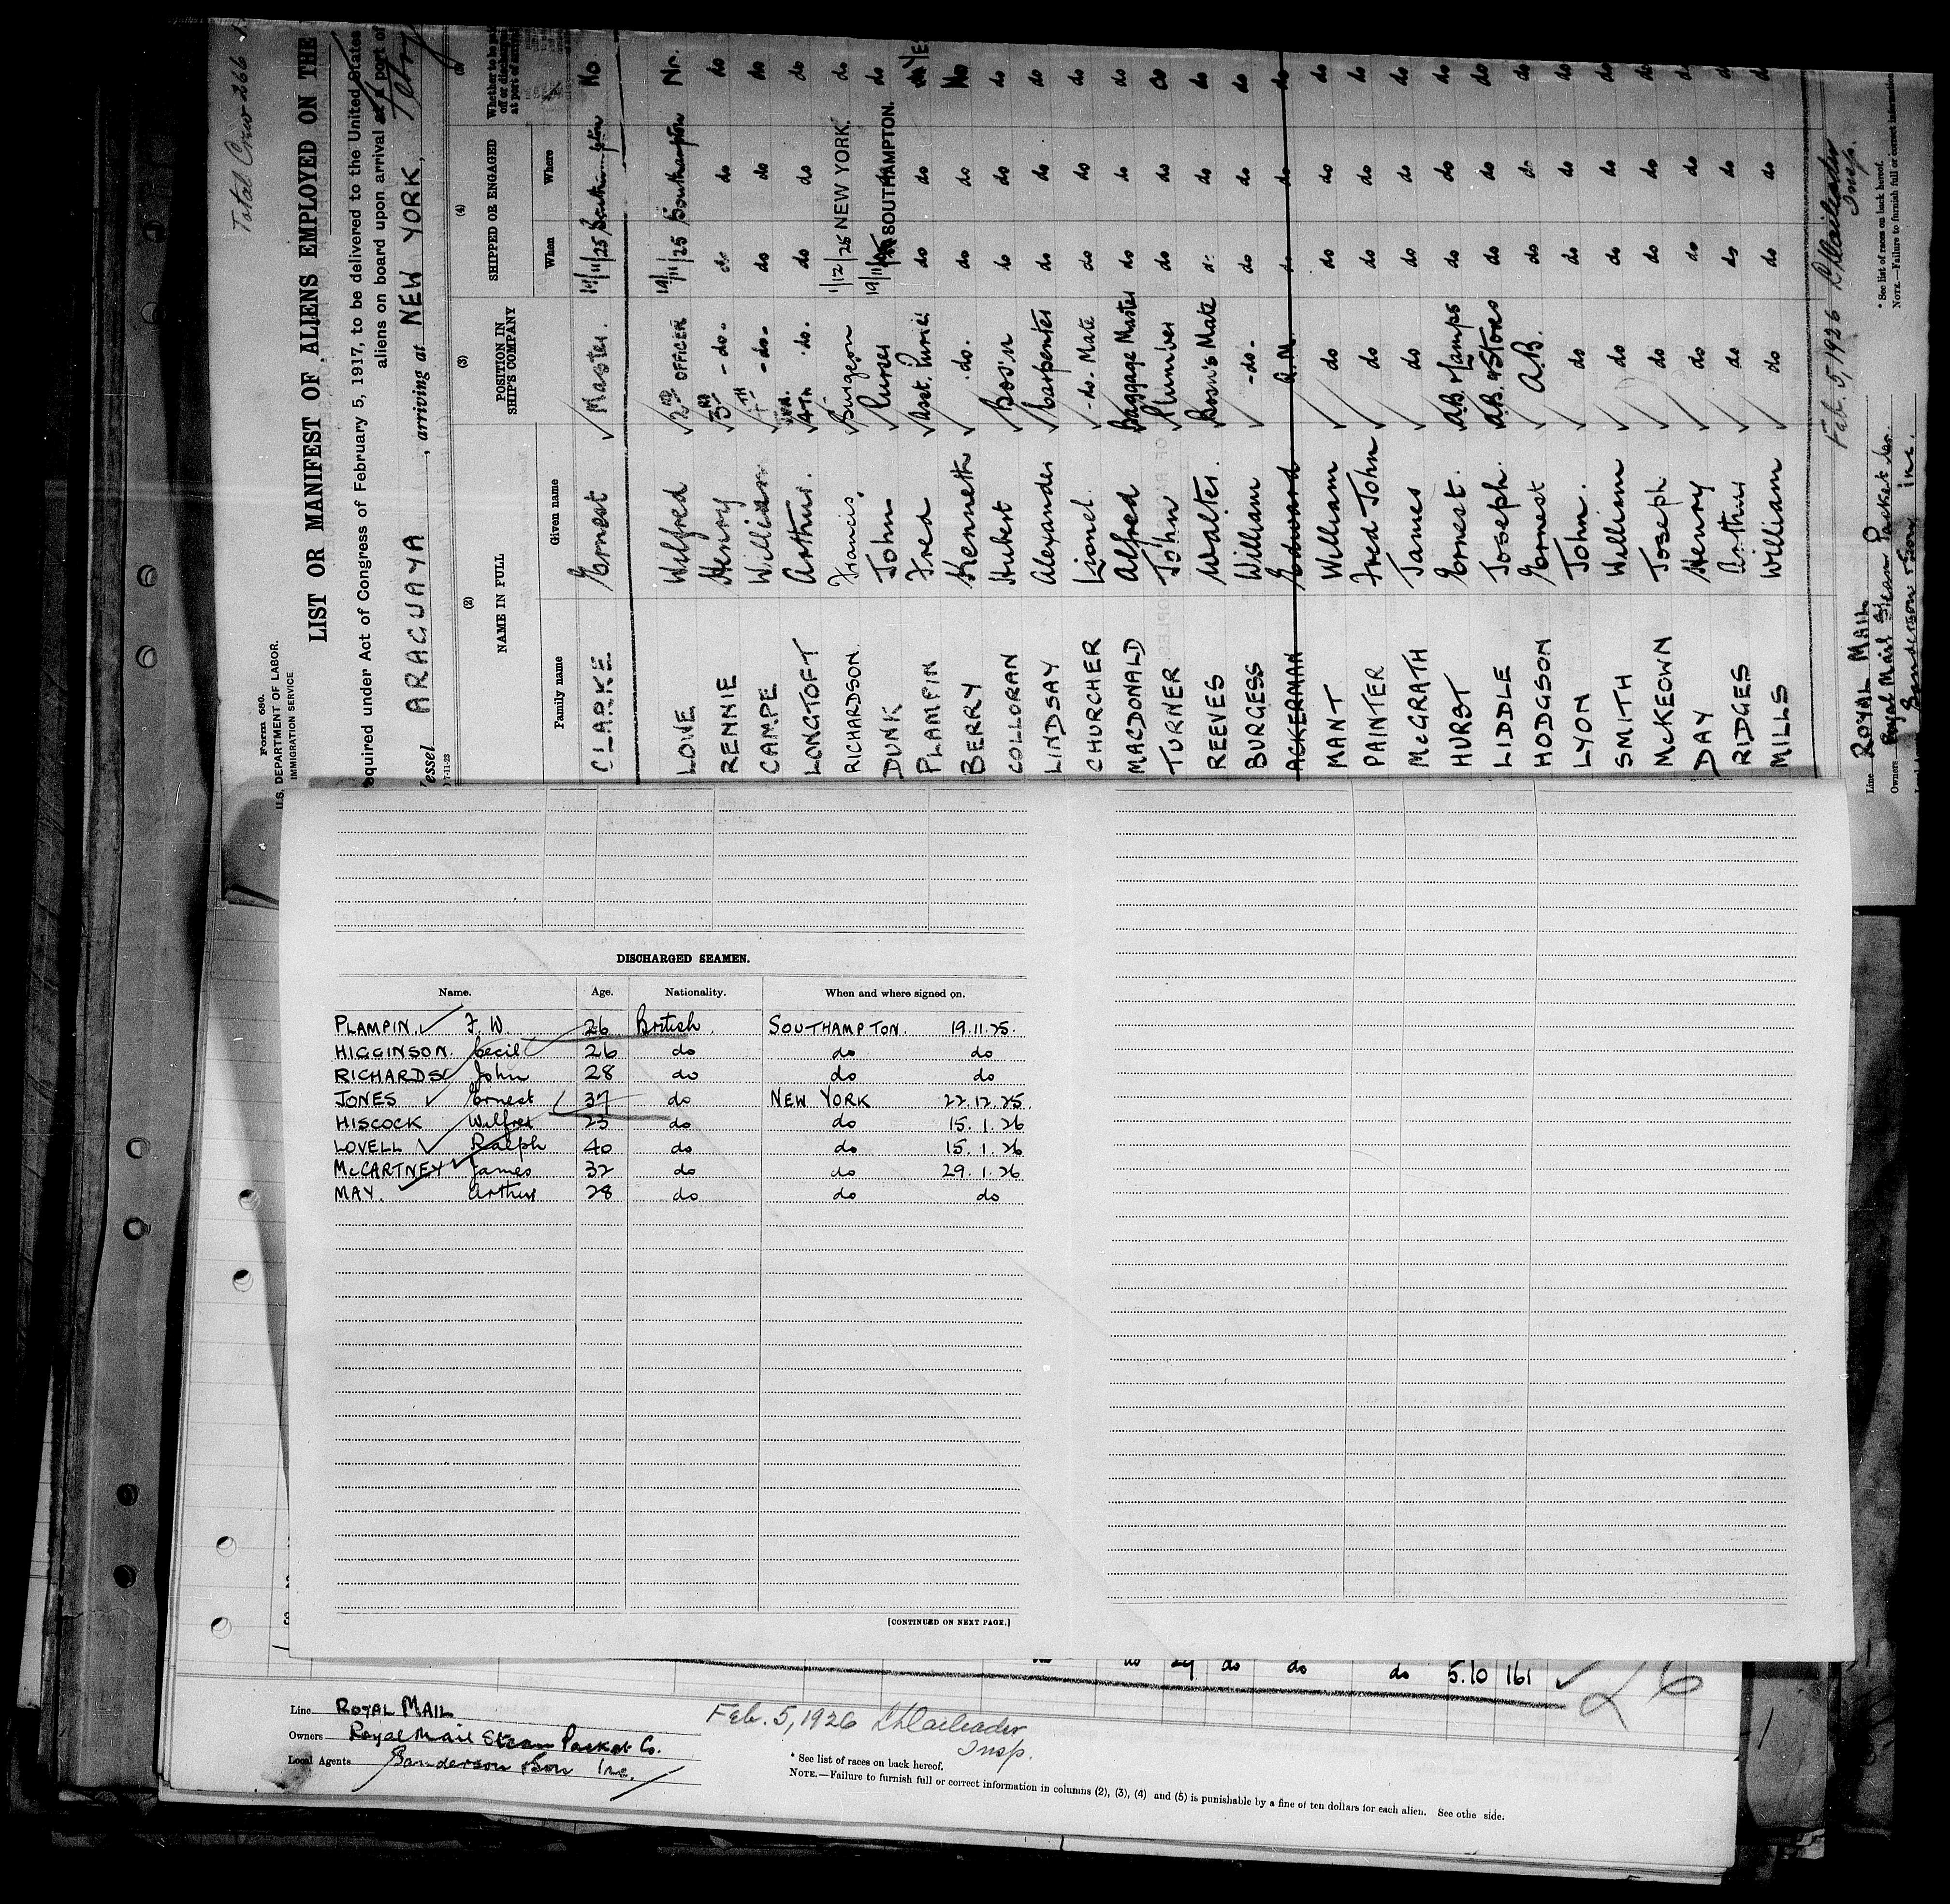 Total Crew 266
Form 680.
U.S. DEPARTMENT OF LABOR.
IMMIGRATION SERVICE
LIST OR MANIFEST OF ALIENS EMPLOYED ON THE
equired under Act of Congress of February 5, 1917, to be delivered to the United States
aliens on board upon arrival at a port of
essel ARAGUAYA, arriving at NEW YORK,
7-11-23
(2) (3) (4)
NAME IN FULL POSITION IN SHIP'S COMPANY SHIPPED OR ENGAGED Whether to be paid off or discharged at port of arrival
Family name Given name When Where
CLARKE Ernest Master 19/11/25 Southampton No
LOWE Wilfred 2ND OFFICER 19/11/25 Southampton No.
RENNIE Henry 3RD -do- do do do
CAMPE William 4TH -do- do do do
LONGTOFT Arthur. 4TH do. do do do
RICHARDSON. Francis. Surgeon 1/12/25 NEW YORK. do
DUNK John Purser 19/11/25 SOUTHAMPTON. do
PLAMPIN Fred Asst. Purser do do Yes
BERRY Kenneth do. do do No
COLLORAN Hubert Bos'n do do do
LINDSAY Alexander Carpenter do do do
CHURCHER Lionel -do- Mate do do do
MACDONALD Alfred Baggage Master do do do
TURNER John Plumber do do do
REEVES Walter. Bosn's Mate do do do
BURGESS William -do- do do do
ACKERMAN Edward Q.M. do do do
MANT William do do do do
PAINTER Fred John do do do do
McGRATH James do do do do
HURST Ernest. A.B. & Lamps do do do
LIDDLE Joseph. A.B. & Stores do do do
HODGSON Ernest A.B. do do do
LYON John. do do do do
SMITH William do do do do
McKEOWN Joseph do do do do
DAY Henry do do do do
RIDGES Arthur do do do do
MILLS William do do do do
Feb. 5, 1926
Insp.
Line ROYAL MAIL
Owners Royal Mail Steam Packet Co.
Sanderson & Son Inc.
* See list of races on back hereof.
NOTE.—Failure to furnish full or correct information
DISCHARGED SEAMEN.
Name. Age. Nationality. When and where signed on.
PLAMPIN. F. W. 26 British. SOUTHAMPTON. 19.11.25.
HIGGINSON. Cecil 26 do do do
RICHARDS John 28 do do do
JONES Ernest 37 do NEW YORK 22.12.25.
HISCOCK Wilfred 23 do do 15.1.26
LOVELL Ralph 40 do do 15.1.26
McCARTNEY James 32 do do 29.1.26
MAY. Arthur 28 do do do
[CONTINUED ON NEXT PAGE.]
do do do do 5.10 161
26
Line ROYAL MAIL
Owners Royal Mail Steam Packet Co.
Local Agents Sanderson & Son Inc.
Feb. 5, 1926
Insp.
* See list of races on back hereof.
NOTE.—Failure to furnish full or correct information in columns (2), (3), (4) and (5) is punishable by a fine of ten dollars for each alien. See othe side.